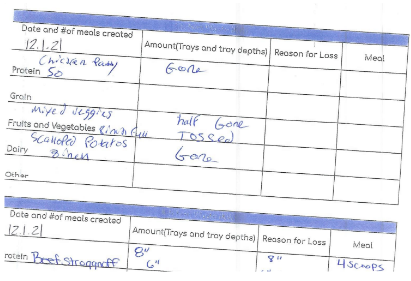 Date and #of meals created Amount(Trays and tray depths) Reason for Loss Meal
12.1.21
Chicken Patty Gone
Protein 50
Grain
Mixed Veggies half Gone
Fruits and Vegetables 8 inch full Tossed
Scalloped Potatos Gone
Dairy 8 inch
Other
Date and #of meals created Amount(Trays and tray depths) Reason for Loss Meal
12.1.21
8" 8" 4 Scoops
rotein Beef Stroganoff 6"